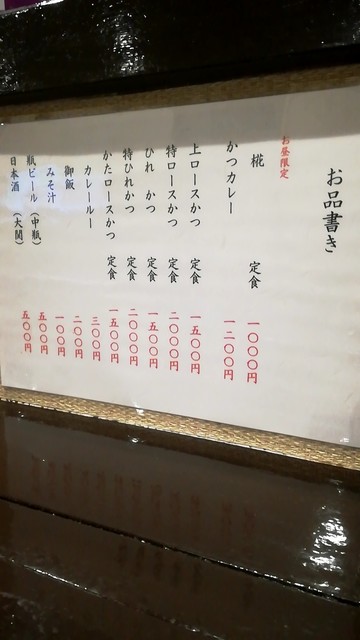 お品書き
お昼限定
椛 定食 一〇〇〇円
かつカレー 一二〇〇円
上ロースかつ 定食 一五〇〇円
特ロースかつ 定食 二〇〇〇円
ひれかつ 定食 一五〇〇円
特ひれかつ 定食 二〇〇〇円
かたロースかつ 定食 一五〇〇円
カレールー 三〇〇円
御飯 二〇〇円
みそ汁 一〇〇円
瓶ビール（中瓶） 五〇〇円
日本酒（大関） 五〇〇円